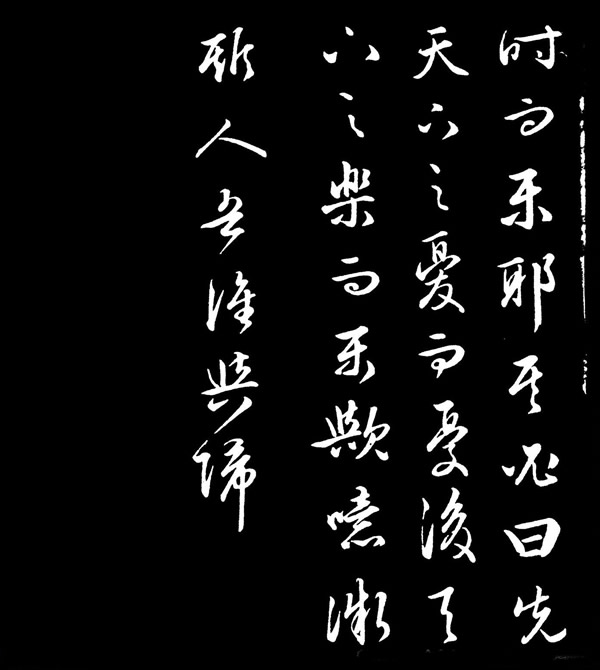 时而乐耶其必曰先
天下之憂而憂後天
下之樂而乐歟噫微
斯人吾誰與歸